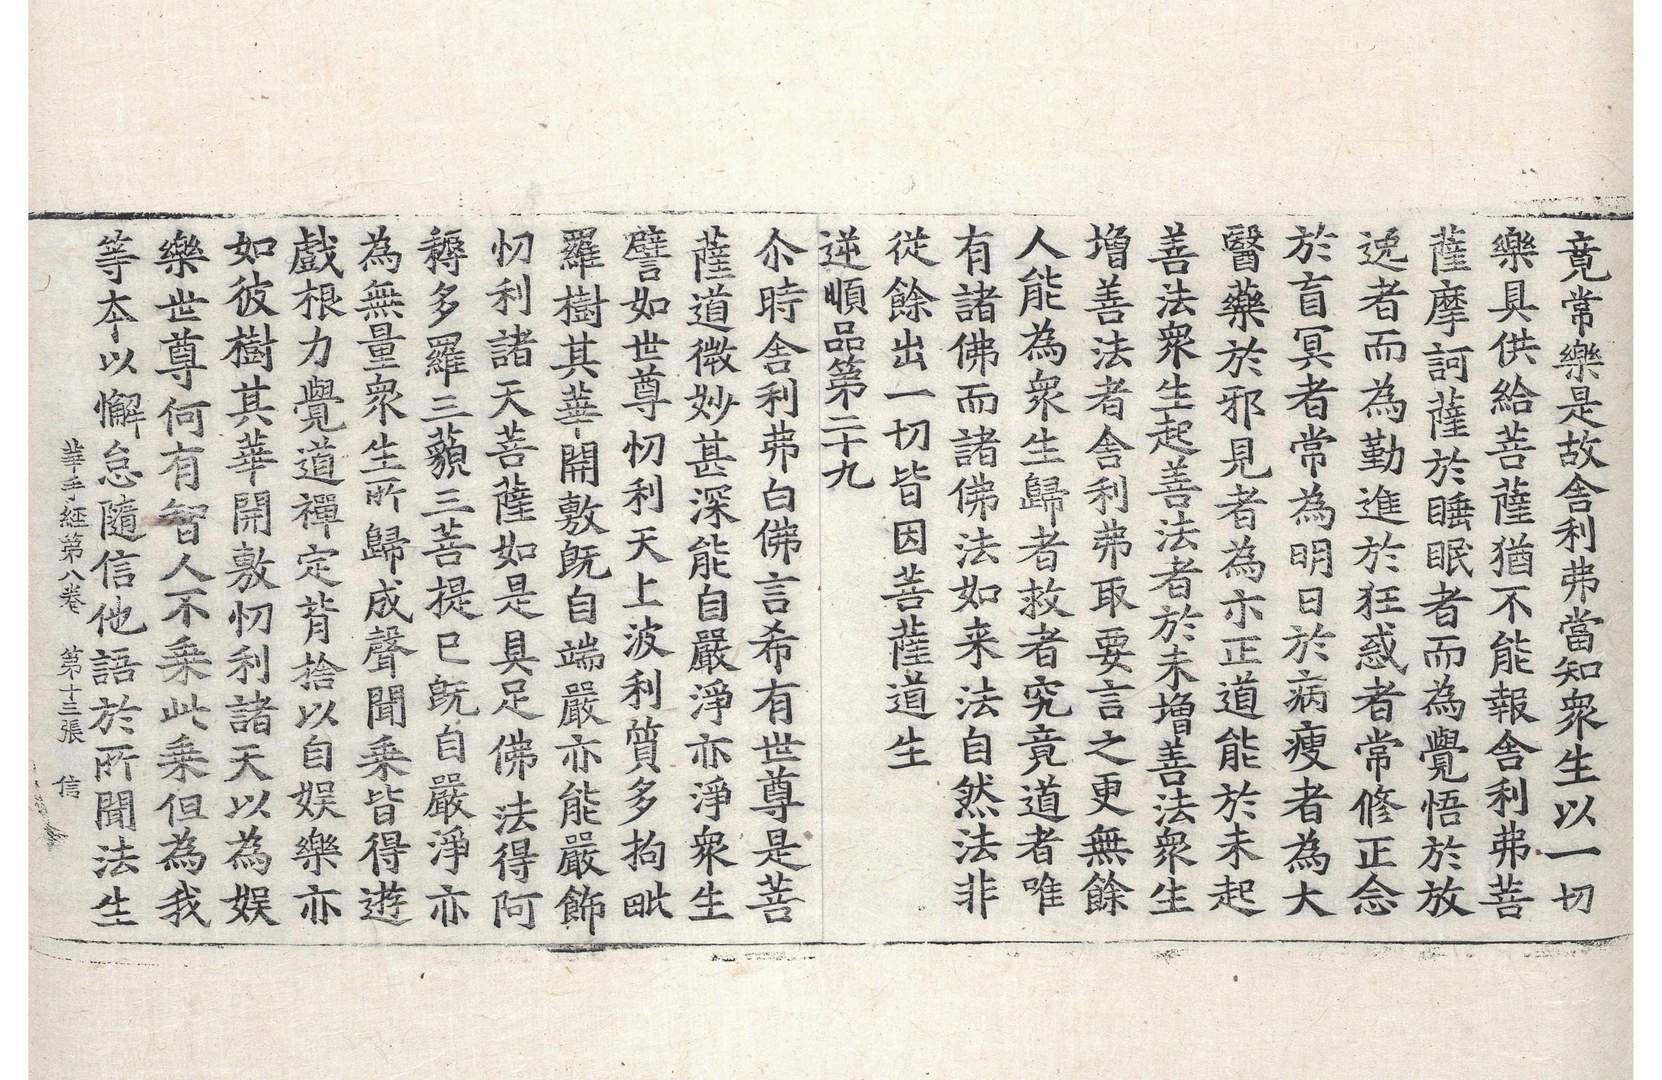 竟常樂是故舍利弗當知衆生以一切
樂具供給菩薩猶不能報舍利弗菩
薩摩訶薩於睡眠者而爲覺悟於放
逸者而為勤進於狂惑者常修正念
於盲冥者常為明日於病瘦者為大
醫藥於邪見者為示正道能於未起
善法衆生起善法者於未增善法衆生
增善法者舍利弗取要言之更無餘
人能為衆生歸者救者究竟道者唯
有諸佛而諸佛法如来法自然法非
從餘出一切皆因菩薩道生
逆順品第二十九
尒時舍利弗白佛言希有世尊是菩
薩道微妙甚深能自嚴淨亦淨衆生
譬如世尊忉利天上波利質多拘毗
羅樹其華開敷既自端嚴亦能嚴飾
忉利諸天菩薩如是具足佛法得阿
耨多羅三藐三菩提已既自嚴淨亦
為無量衆生所歸成聲聞乘皆得遊
戲根力覺道禪定背捨以自娛樂亦
如彼樹其華開敷忉利諸天以為娛
樂世尊何有智人不乘此乘但為我
等夲以懈怠隨信他語於所聞法生
華手經第八卷 第十三張 信